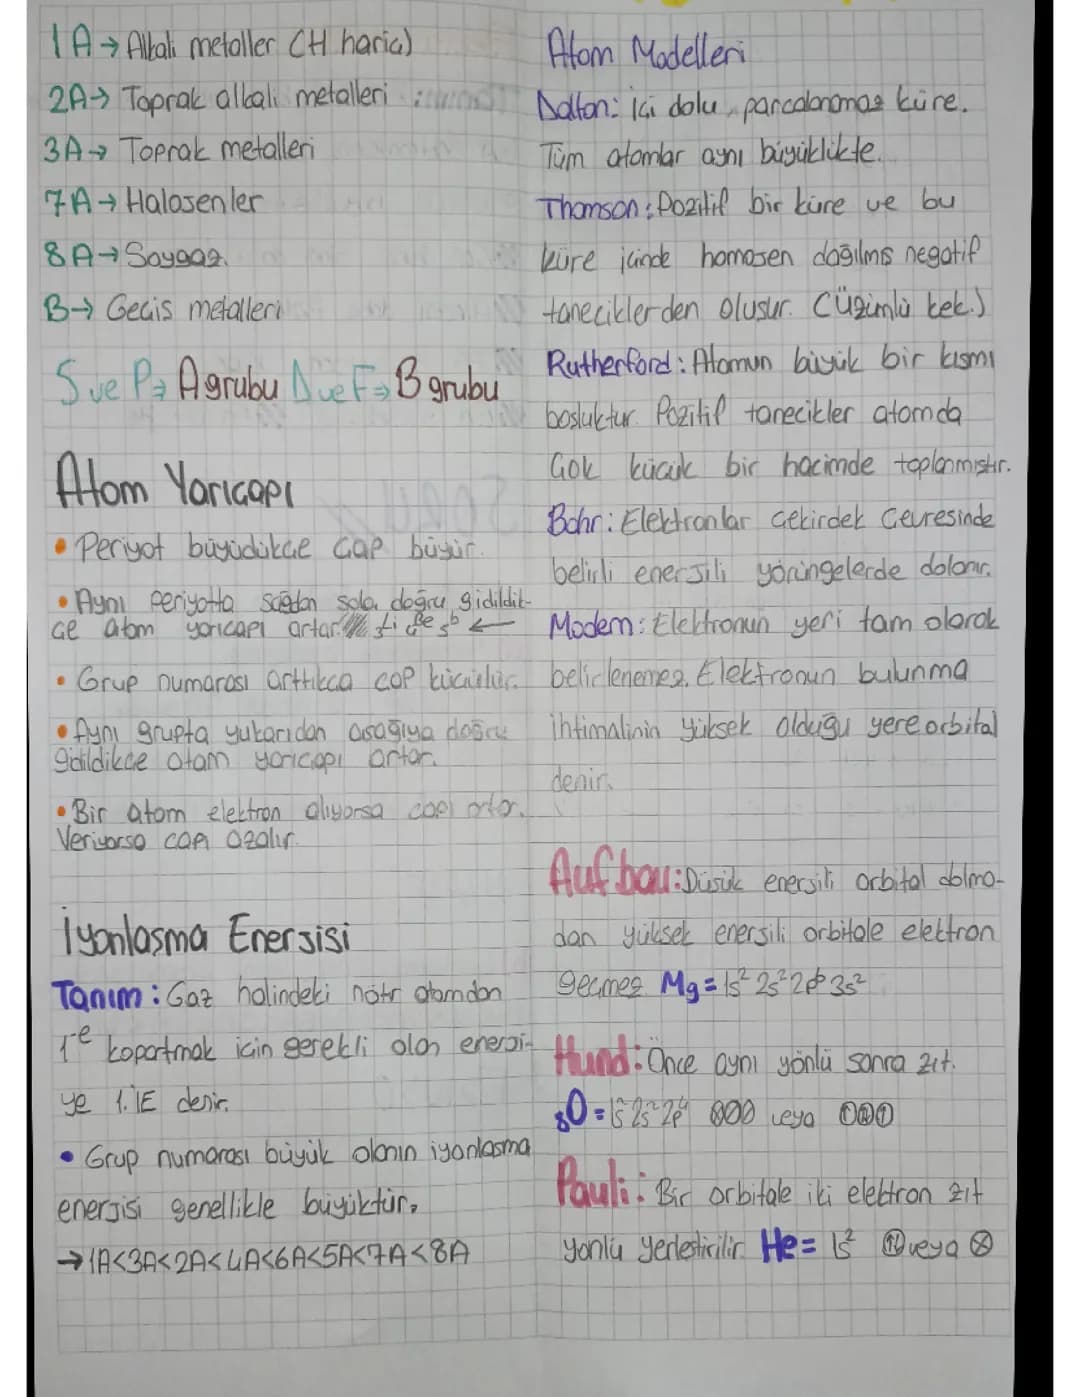 1A→ Alkali metaller (H hariç)
2A→ Toprak alkali metalleri
3A→ Toprak metalleri
7A→ Halojenler
8A→ Soygaz.
B→ Geçiş metalleri
S ve P⇒ A grubu D ve F⇒ B grubu
Atom Yarıçapı
• Periyot büyüdükçe çap büyür.
• Aynı periyotta sağdan sola doğru gidildik-
çe atom yarıçapı artar. ←
• Grup numarası arttıkça çap küçülür.
• Aynı grupta yukarıdan aşağıya doğru
gidildikçe atom yarıçapı artar.
• Bir atom elektron alıyorsa çapı artar.
Veriyorsa çapı azalır.
İyonlaşma Enerjisi
Tanım: Gaz halindeki nötr atomdan
1e⁻ kopartmak için gerekli olan enerji-
ye 1.İE denir.
• Grup numarası büyük olanın iyonlaşma
enerjisi genellikle büyüktür.
→1A<3A<2A<4A<6A<5A<7A<8A
Atom Modelleri
Dalton: İçi dolu, parçalanamaz küre.
Tüm atomlar aynı büyüklükte.
Thomson: Pozitif bir küre ve bu
küre içinde homojen dağılmış negatif
taneciklerden oluşur. (Üzümlü kek.)
Rutherford: Atomun büyük bir kısmı
boşluktur. Pozitif tanecikler atomda
Çok küçük bir hacimde toplanmıştır.
Bohr: Elektronlar çekirdek çevresinde
belirli enerjili yörüngelerde dolanır.
Modern: Elektronun yeri tam olarak
belirlenemez. Elektronun bulunma
ihtimalinin yüksek olduğu yere orbital
denir.
Aufbau: Düşük enerjili orbital dolma-
dan yüksek enerjili orbitale elektron
geçmez Mg= 1s² 2s² 2p⁶ 3s²
Hund: Önce aynı yönlü sonra zıt.
₈O= 1s² 2s² 2p⁴ veya
Pauli: Bir orbitale iki elektron zıt
yönlü yerleştirilir. He= 1s² veya